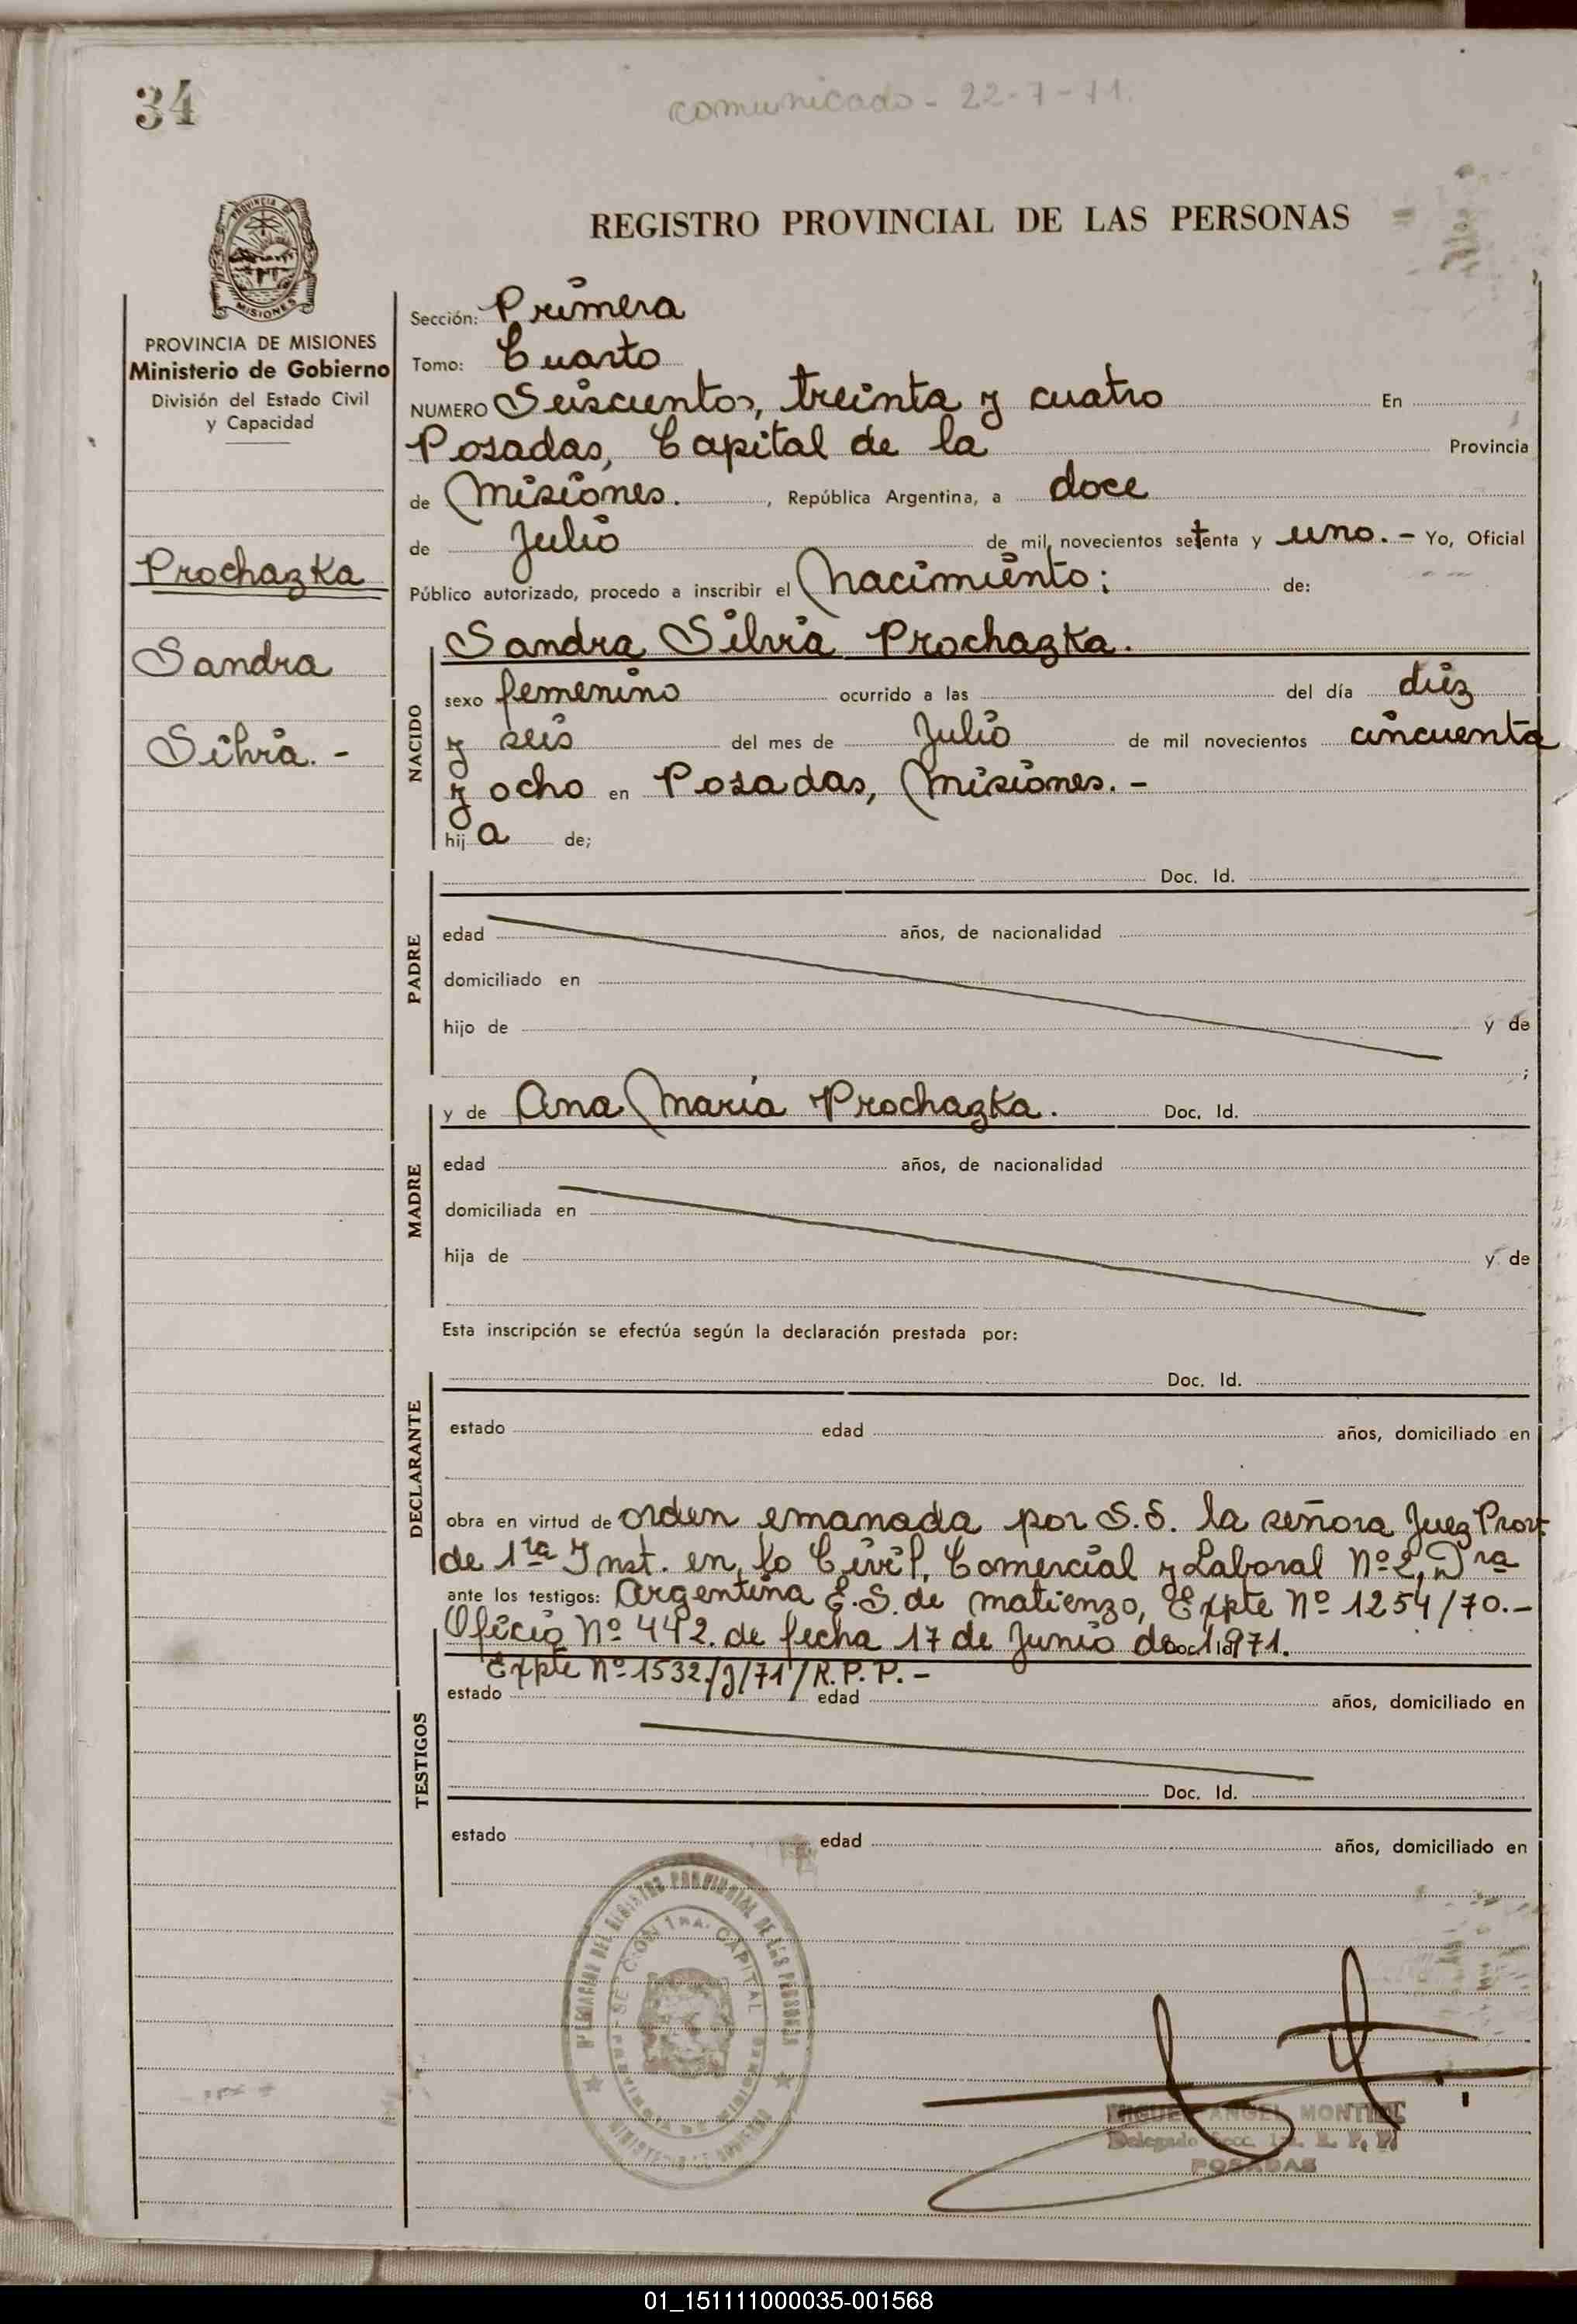 34
comunicado - 22-7-71.
REGISTRO PROVINCIAL DE LAS PERSONAS
PROVINCIA DE MISIONES
Ministerio de Gobierno
División del Estado Civil
y Capacidad
Prochazka
Sandra
Silvia. -
Sección: Primera
Tomo: Cuarto
NUMERO Seiscientos, treinta y cuatro En
Posadas, Capital de la Provincia
de Misiones. , República Argentina, a doce
de Julio de mil novecientos setenta y uno. - Yo, Oficial
Público autorizado, procedo a inscribir el Nacimiento; de:
NACIDO
Sandra Silvia Prochazka.
sexo femenino ocurrido a las del día diez
y seis del mes de Julio de mil novecientos cincuenta
y ocho en Posadas, Misiones. -
hija de;
PADRE
Doc. Id.
edad años, de nacionalidad
domiciliado en
hijo de y de
;
MADRE
y de Ana María Prochazka. Doc. Id.
edad años, de nacionalidad
domiciliada en
hija de y de
Esta inscripción se efectúa según la declaración prestada por:
DECLARANTE
Doc. Id.
estado edad años, domiciliado en
obra en virtud de orden emanada por S.S. la señora Juez Prov.
de 1ra Inst. en lo Civil, Comercial y Laboral Nº 2, Dra
ante los testigos: Argentina E.S. de Matienzo, Expte Nº 1254/70.-
Oficio Nº 442. de fecha 17 de Junio de 1971.
Expte Nº 1532/J/71/R.P.P.-
TESTIGOS
estado edad años, domiciliado en
Doc. Id.
estado edad años, domiciliado en
SECCION 1RA. CAPITAL
MIGUEL ANGEL MONTIEL
Delegado Secc. 1ra. R. P. P.
POSADAS
01_151111000035-001568